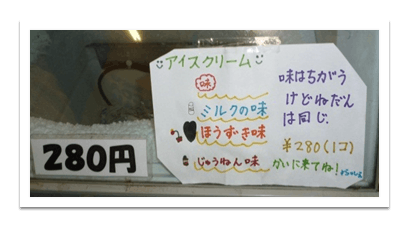 アイスクリーム
味
ミルクの味
ほうずき味
じゅうねん味
味はちがう
けどねだん
は同じ.
¥280(1コ)
かいに来てね!
280円